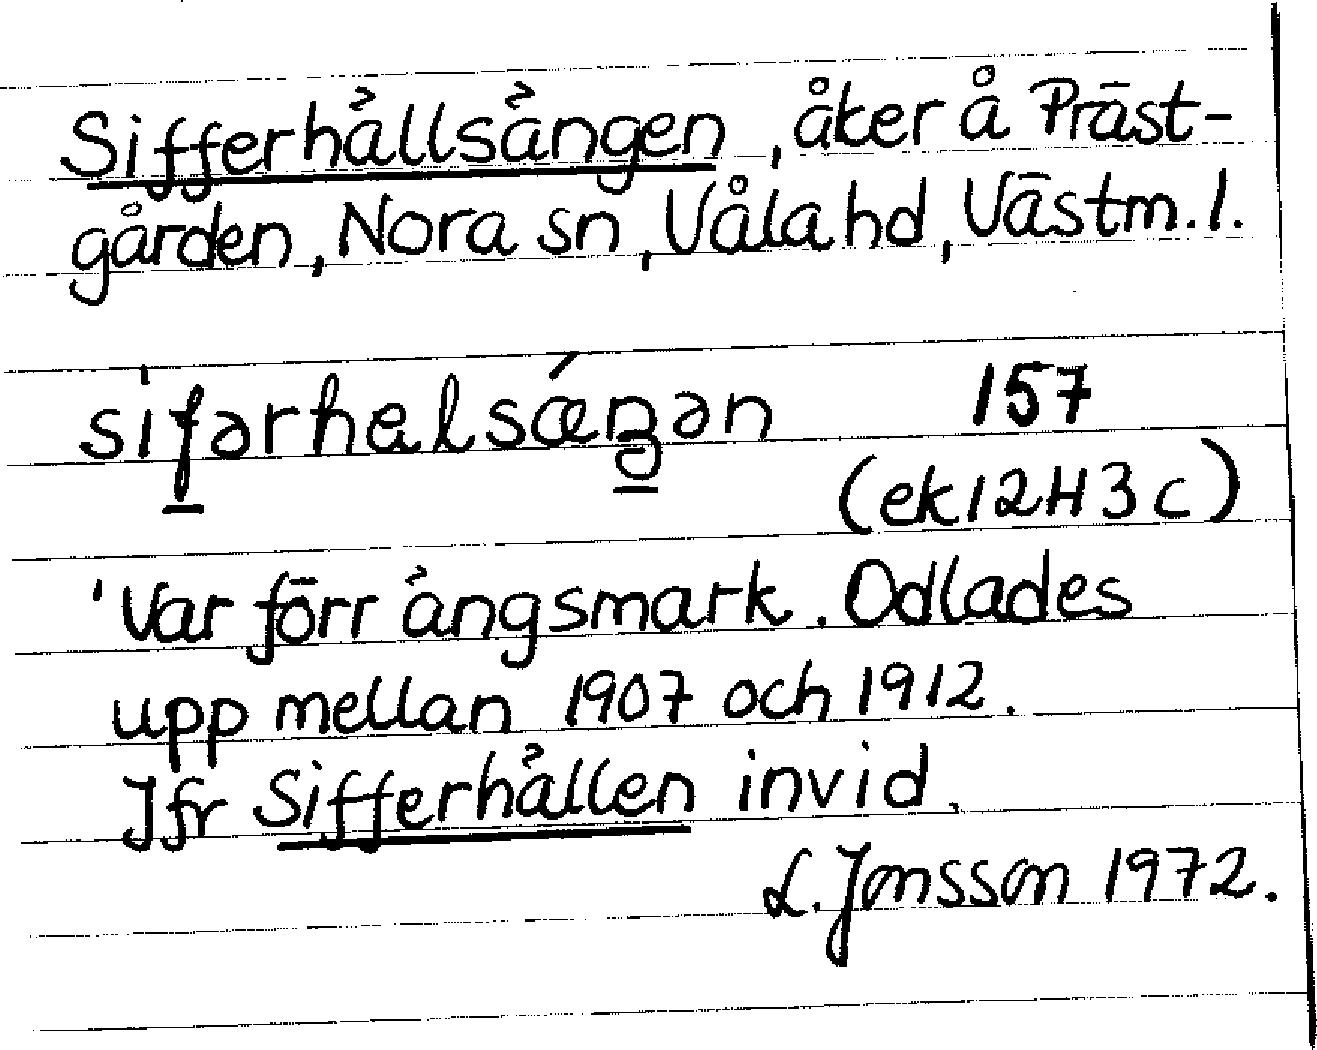 Sifferhällsängen, åker å Präst-
gården, Nora sn, Våla hd, Västm. l.
sifərhalsǽŋən 157
(ek 12H3c)
'Var förr ängsmark. Odlades
upp mellan 1907 och 1912.
Jfr Sifferhällen invid.
L. Jonsson 1972.